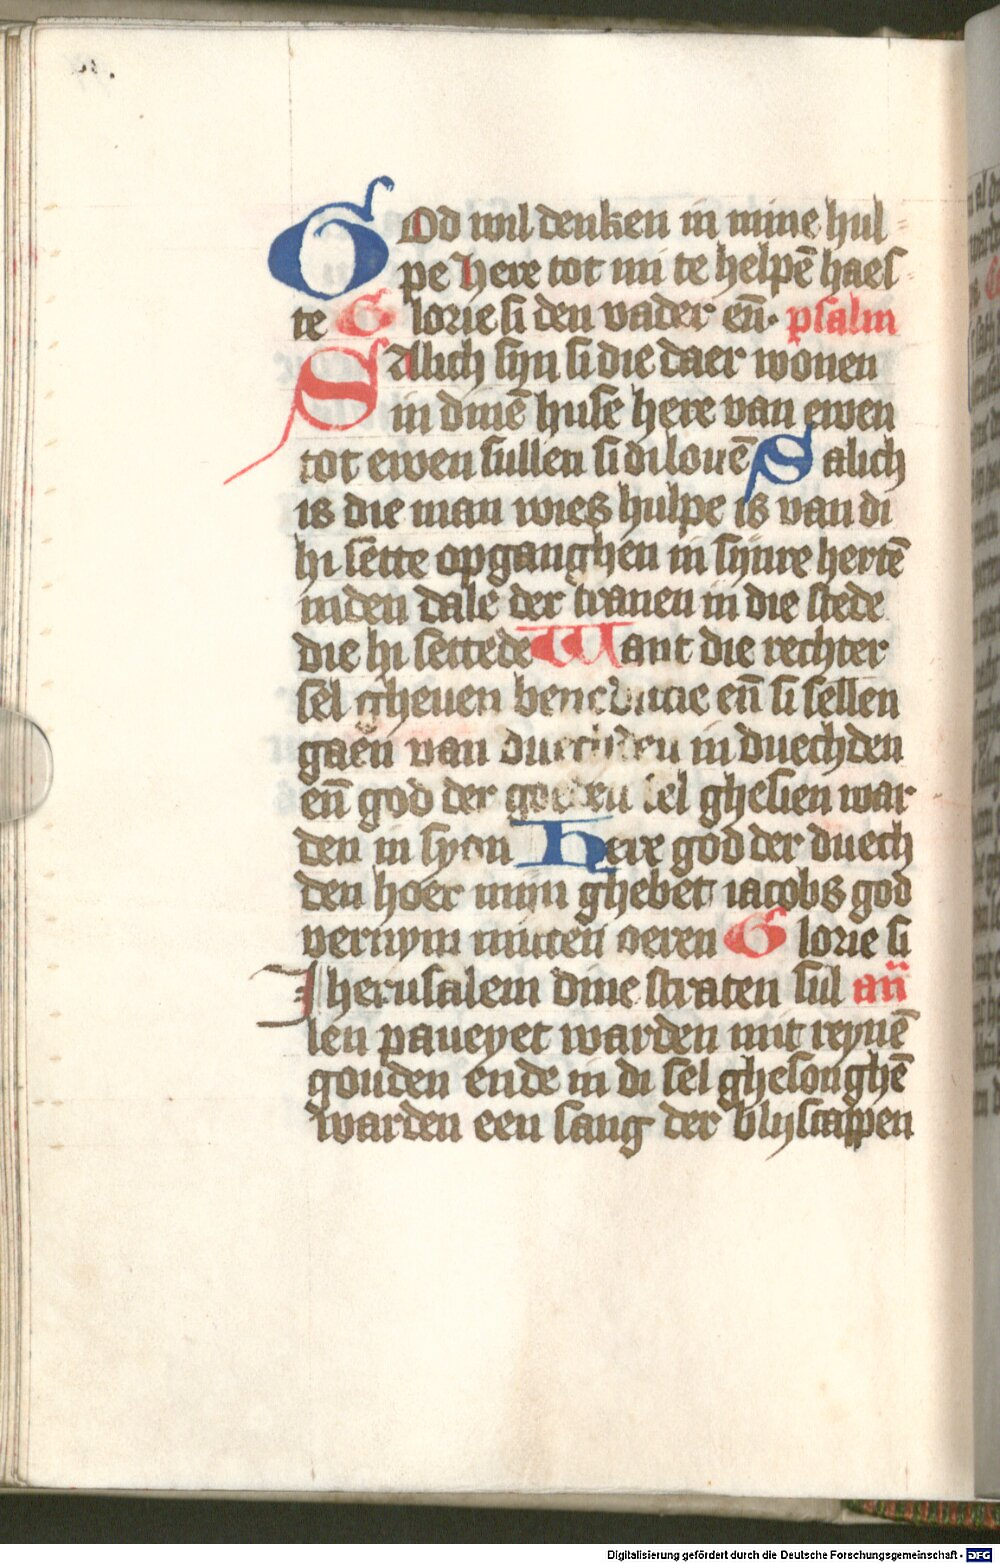 GOd wil denken in mine hul
pe here tot mi te helpē haes
te Glorie si den vader en̄. psalm
SAlich syn si die daer wonen
in dinē huse here van ewen
tot ewen sullen si di louē Salich
is die man wies hulpe is van di
hi sette opganghen in synre hertē
inden dale der tranen in die stede
die hi settede Want die rechter
sel gheuen benedictie en̄ si sellen
gaen van duechden in duechden
en̄ god der goeden sel ghesien war
den in syon Here god der duech
den hoer mijn ghebet iacobs god
vernym mitten oeren Glorie si
Jherusalem dine straten sul an̄
len paueyet warden mit reynē
gouden ende in di sel ghesonghē
warden een sang der blijscappen
Digitalisierung gefördert durch die Deutsche Forschungsgemeinschaft - DFG